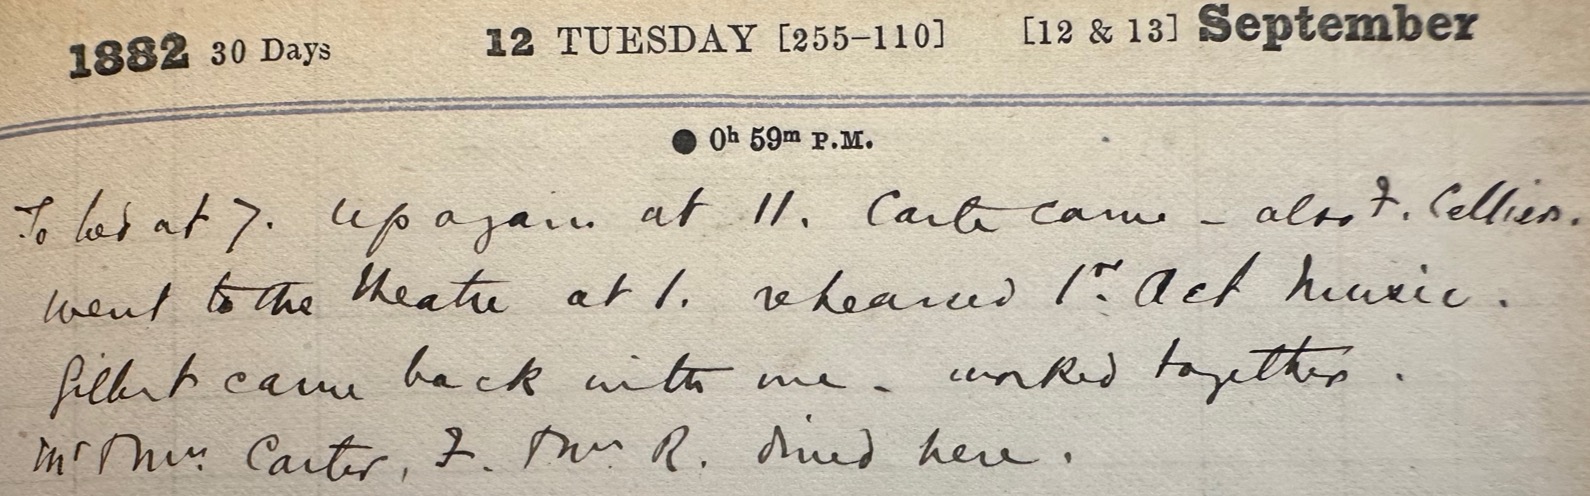 1882 30 Days 12 TUESDAY [255–110] [12 & 13] September
● 0h 59m P.M.
To bed at 7. Up again at 11. Carte came – also F. Cellier.
went to the theatre at 1. rehearsed 1st. Act Music.
Gilbert came back with me – worked together.
Mr & Mrs. Carter, F. & Mrs R. dined here.